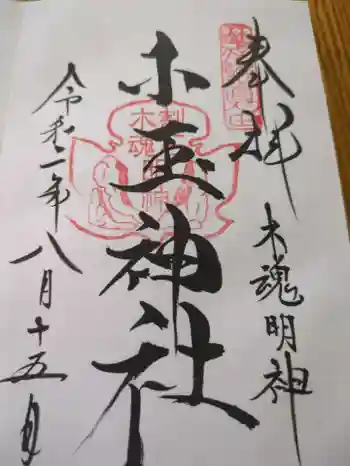 奉拝
木魂明神
木玉神社
令和二年八月十五日
木魂
神